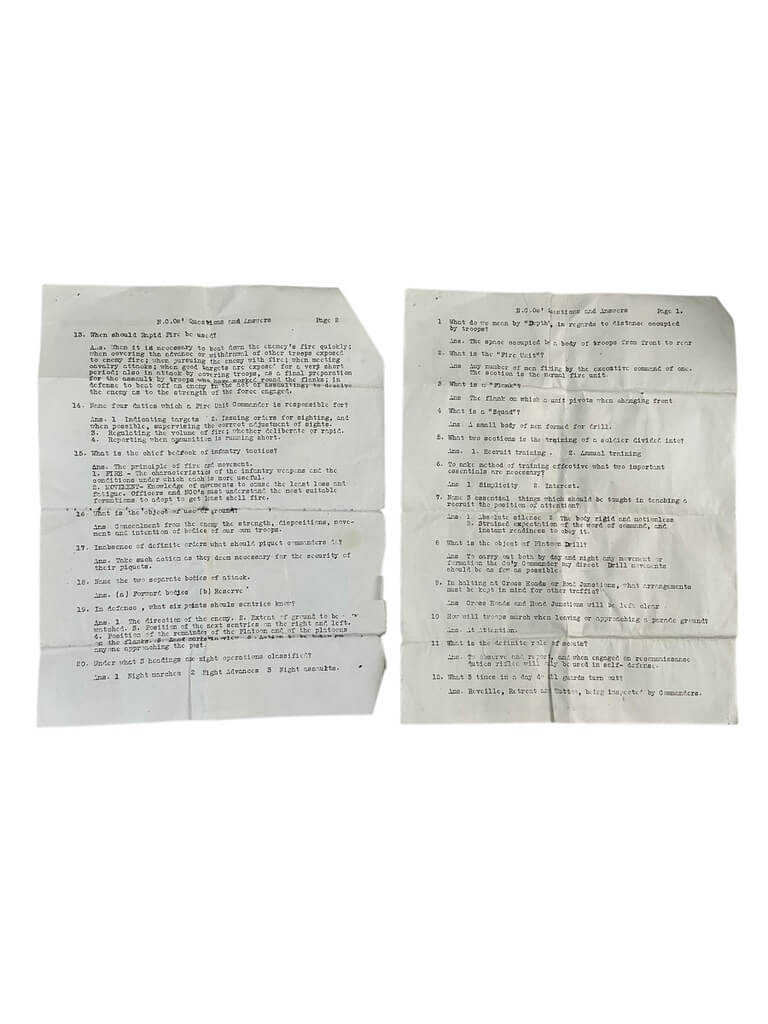 N.C.Os' Questions and Answers Page 2
13. When should Rapid Fire be used?
Ans. When it is necessary to beat down the enemy's fire quickly;
when covering the advance or withdrawal of other troops exposed
to enemy fire; when pursuing the enemy with fire; when meeting
cavalry attacks; when good targets are exposed for a very short
period; also in attack by covering troops, as a final preparation
for the assault by troops who have worked round the flanks; in
defense to beat off an enemy in the act of assaulting; to deceive
the enemy as to the strength of the force engaged.
14. Name four duties which a Fire Unit Commander is responsible for?
Ans. 1 Indicating targets 2. Issuing orders for sighting, and
when possible, supervising the correct adjustment of sights.
3. Regulating the volume of fire; whether deliberate or rapid.
4. Reporting when ammunition is running short.
15. What is the chief bedrock of infantry tactics?
Ans. The principle of fire and movement.
1. FIRE - The characteristics of the infantry weapons and the
conditions under which each is more useful.
2. MOVEMENT- Knowledge of movements to cause the least loss and
fatigue. Officers and NCO's must understand the most suitable
formations to adopt to get past shell fire.
16. What is the object of use of ground?
Ans. Concealment from the enemy the strength, dispositions, move-
ment and intention of bodies of our own troops.
17. In absence of definite orders what should piquet commanders do?
Ans. Take such action as they deem necessary for the security of
their piquets.
18. Name the two separate bodies of attack.
Ans. (a) Forward bodies (b) Reserve
19. In defense, what six points should sentries know?
Ans. 1 The direction of the enemy. 2. Extent of ground to be
watched. 3. Position of the next sentries on the right and left.
4. Position of the remainder of the Platoon and of the platoons
on the flanks. 5. Land marks in view. 6. Action to be taken on
anyone approaching the post.
20. Under what 3 headings are night operations classified?
Ans. 1 Night marches 2 Night Advances 3 Night assaults.
N.C.Os' Questions and Answers Page 1.
1 What do we mean by "Depth", in regards to distance occupied
by troops?
Ans. The space occupied by a body of troops from front to rear
2. What is the "Fire Unit"?
Ans Any number of men firing by the executive command of one.
The section is the normal fire unit.
3. What is a "Flank"?
Ans The flank on which a unit pivots when changing front
4. What is a "Squad"?
Ans. A small body of men formed for drill.
5. What two sections is the training of a soldier divided into?
Ans. 1. Recruit training. 2. Annual training
6. To make method of training effective what two important
essentials are necessary?
Ans 1 Simplicity 2. Interest.
7. Name 3 essential things which should be taught in teaching a
recruit the position of attention?
Ans. 1 Absolute silence 2 The body rigid and motionless
3. Strained expectation of the word of command, and
instant readiness to obey it.
8 What is the object of Platoon Drill?
Ans To carry out both by day and night any movement or
formation the Co'y Commander may direct Drill movements
should be as few as possible
9. In halting at Cross Roads or Road Junctions, what arrangements
must be kept in mind for other traffic?
Ans Cross Roads and Road Junctions will be left clear
10 How will troops march when leaving or approaching a parade ground?
Ans. At Attention.
11 What is the definite role of scouts?
Ans. To observe and report, and when engaged on reconnaissance
duties rifles will only be used in self- defense.
12. What 3 times in a day do all guards turn out?
Ans. Reveille, Retreat and Tattoo, being inspected by Commanders.